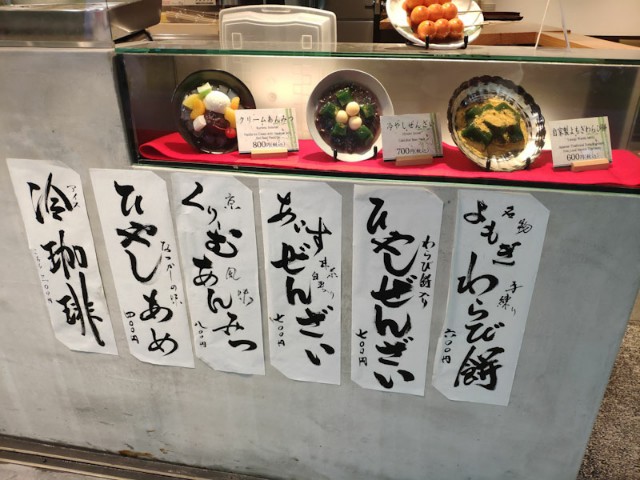 クリームあんみつ
800円(税込)
冷やしぜんざい
700円(税込)
自家製よもぎわらび餅
600円(税込)
名物
よもぎわらび餅
手練り
六〇〇円
わらび餅入り
ひやしぜんざい
七〇〇円
あいすぜんざい
七〇〇円
京風味
くりむあんみつ
八〇〇円
ひやしあめ
四〇〇円
アイス
冷珈琲